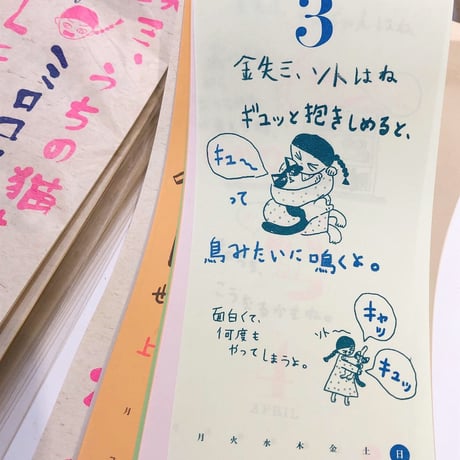 3
鉄三、ソトはね
ギュッと抱きしめると、
キュ〜
って
鳥みたいに鳴くよ。
面白くて、
何度も
やってしまうよ。
ソト〜
キャッ
キュッ
月 火 水 木 金 土 日
三、うちの
猫
ミロコ
せ
上
月